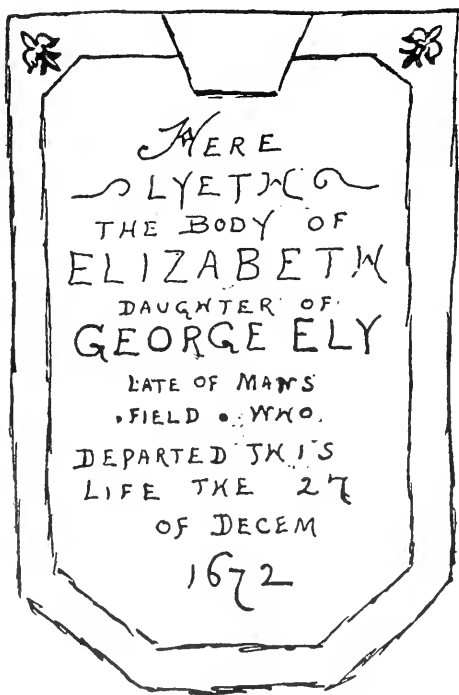 HERE
LYETH
THE BODY OF
ELIZABETH
DAUGHTER OF
GEORGE ELY
LATE OF MANS
FIELD . WHO
DEPARTED THIS
LIFE THE 27
OF DECEM
1672